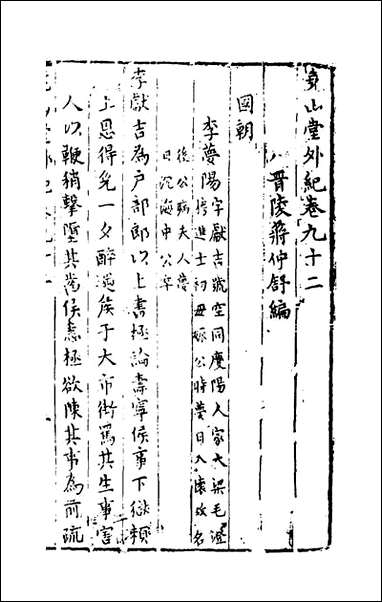 堯山堂外紀卷九十二
晉陵蔣仲舒編
國朝
李夢陽字獻吉號空同慶陽人家大梁毛澄
榜進士初母娠公時夢日入懷故名
後公病夫人夢
日沉海中公卒
李獻吉為戶部郎以上書極論壽寧侯事下獄賴
上恩得免一夕醉遇侯于大市街罵其生事害
人以鞭稍擊墮其齒侯恚極欲陳其事為前疏